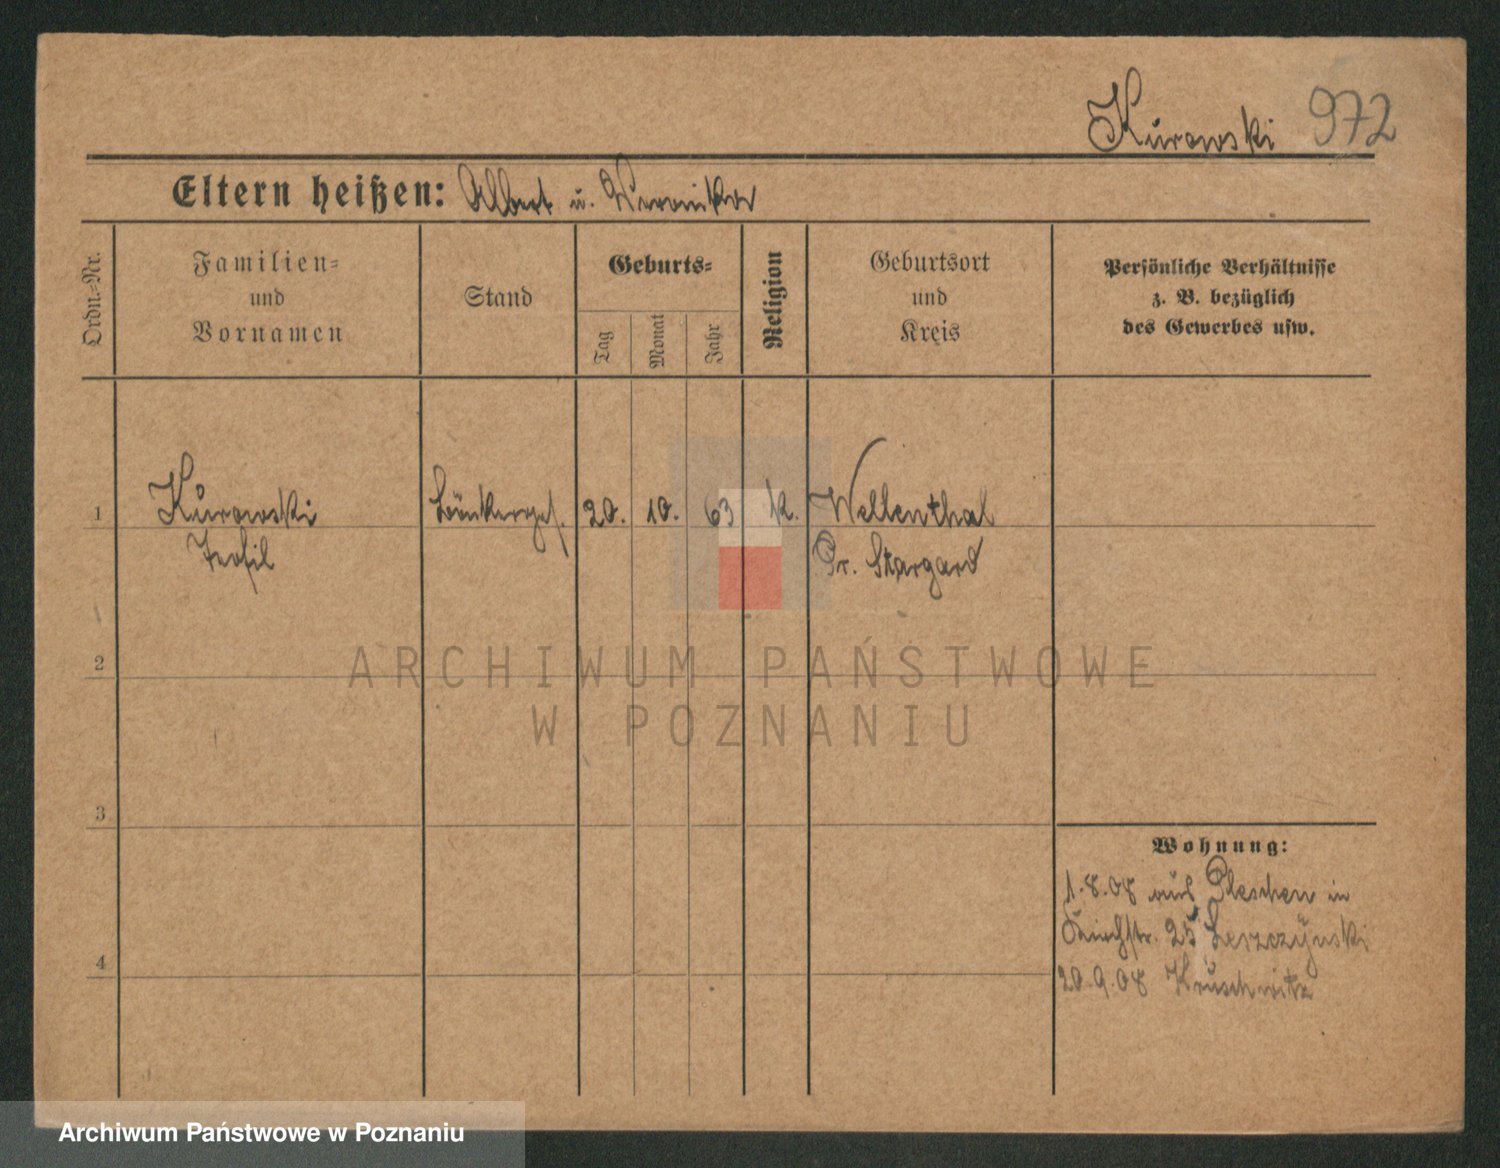 Kurowski 972
Eltern heißen: Albert u. Veronika
Ordn.-Nr.
Familien-
und
Vornamen
Stand
Geburts-
Tag
Monat
Jahr
Religion
Geburtsort
und
Kreis
Persönliche Verhältnisse
z. B. bezüglich
des Gewerbes usw.
1 Kurowski Bäckerges. 20. 10. 63 K. Wellenthal
Teofil Pr. Stargard
2
ARCHIWUM PAŃSTWOWE
W POZNANIU
3
Wohnung:
1.8.08 aus Pleschen in
Kirchstr. 25 Leszczynski
4
20.9.08 Kruschwitz
Archiwum Państwowe w Poznaniu